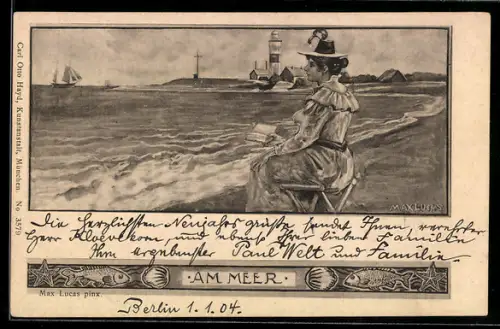 Carl Otto Hayd, Kunstanstalt, München. No 3579
MAX LUCAS
Die herzlichsten Neujahrsgrüße sendet Ihnen verehrter
Herr Kloevekorn, und ebenso Ihrer lieben Familie
Ihr ergebenster Paul Welt und Familie.
AM MEER
Max Lucas pinx.
Berlin 1.1.04.